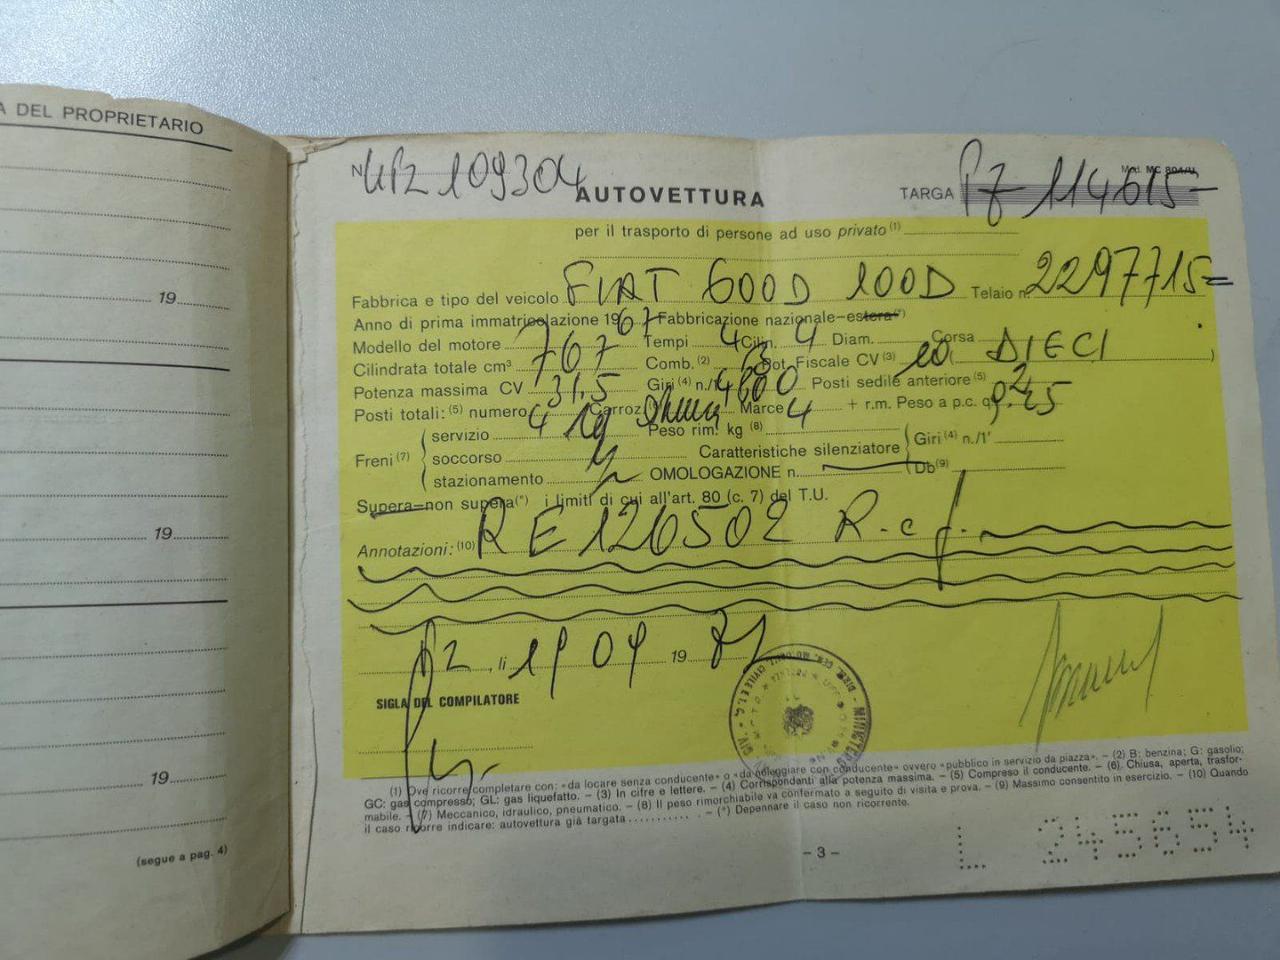 A DEL PROPRIETARIO
19
19
19
(segue a pag. 4)
N. UPZ 109304 AUTOVETTURA TARGA PZ 114615
Mod. MC 804/U
per il trasporto di persone ad uso privato (1)
Fabbrica e tipo del veicolo FIAT 600D 100D Telaio n. 2297715=
Anno di prima immatricolazione 1967 Fabbricazione nazionale-estera(*)
Modello del motore Tempi 4 Cilin. 4 Diam. Corsa
Cilindrata totale cm³ 767 Comb.(2) B Pot. Fiscale CV(3) 10 ( DIECI )
Potenza massima CV 31,5 Giri(4) n./1' 4800 Posti sedile anteriore(5) 2
Posti totali:(5) numero 4 Carroz. chiusa Marce 4 + r.m. Peso a p.c. q. 9.45
Freni(7) servizio Peso rim. kg(8) Caratteristiche silenziatore Giri(4) n./1'
soccorso Db(9)
stazionamento OMOLOGAZIONE n.
Supera-non supera(*) i limiti di cui all'art. 80 (c. 7) del T.U.
Annotazioni:(10) RE126502 R.c.f.
PZ, li 19 04 19
SIGLA DEL COMPILATORE
(1) Ove ricorre completare con: «da locare senza conducente» o «da noleggiare con conducente» ovvero «pubblico in servizio da piazza». – (2) B: benzina; G: gasolio;
GC: gas compresso; GL: gas liquefatto. – (3) In cifre e lettere. – (4) Corrispondenti alla potenza massima. – (5) Compreso il conducente. – (6) Chiusa, aperta, trasfor-
mabile. – (7) Meccanico, idraulico, pneumatico. – (8) Il peso rimorchiabile va confermato a seguito di visita e prova. – (9) Massimo consentito in esercizio. – (10) Quando
il caso ricorre indicare: autovettura già targata .......... . – (*) Depennare il caso non ricorrente.
– 3 –
L 245654